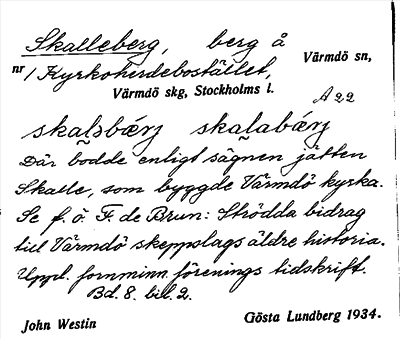 Skalleberg, berg å
Värmdö sn,
nr 1 Kyrkoherdebostället,
Värmdö skg, Stockholms l.
A 22
skalsbærj skalabærj
Där bodde enligt sägnen jätten
Skalle, som byggde Värmdö kyrka.
Se f. ö. F. de Brun: Strödda bidrag
till Värmdö skeppslags äldre historia.
Uppl. fornminn. förenings tidskrift.
Bd. 8. bil. 2.
John Westin Gösta Lundberg 1934.